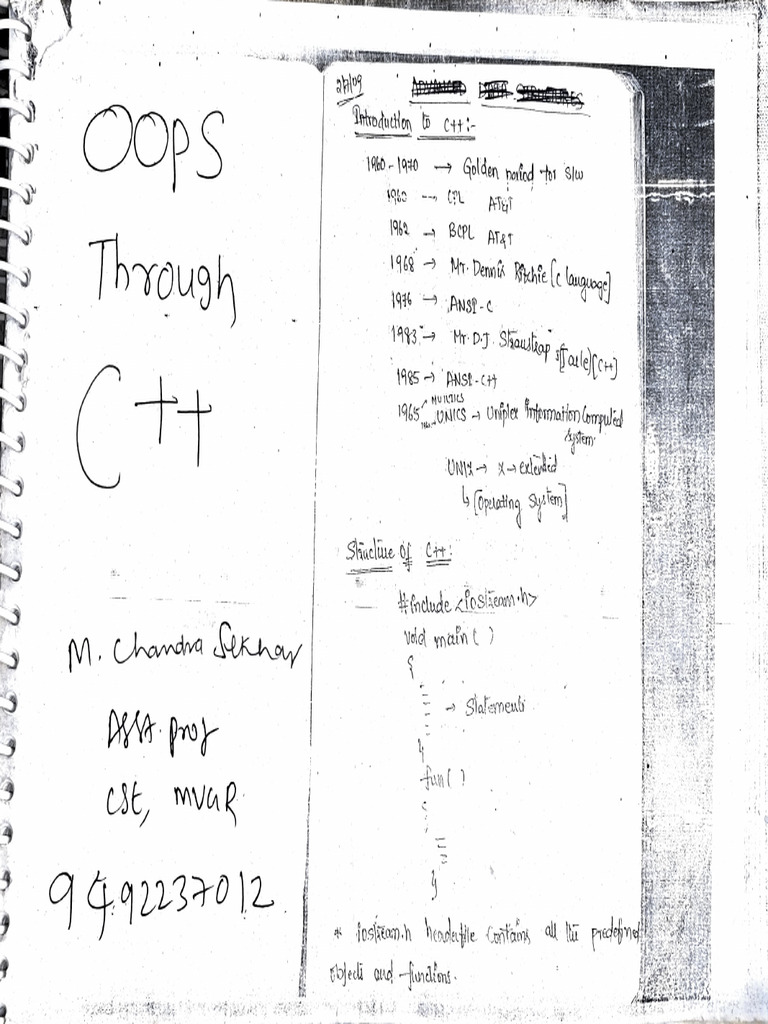 OOPS
Through
C++
M. Chandra Sekhar
Asst. prof
CSE, MVGR
9492237012
Introduction to C++:-
1960-1970 → Golden period for S/w
1960 → CPL AT&T
1962 → BCPL AT&T
1968 → Mr. Dennis Ritchie [C language]
1976 → ANSI-C
1983 → Mr. D.J. Stroustrap [C++]
1985 → ANSI-C++
MULTICS
1965 UNICS → Uniplex Information Computed
System.
UNIX → X → extended
↳ [Operating System]
Structure of C++:
#include <iostream.h>
void main( )
{
→ Statements
}
fun( )
{
}
* iostream.h headerfile contains all the predefined
objects and functions.